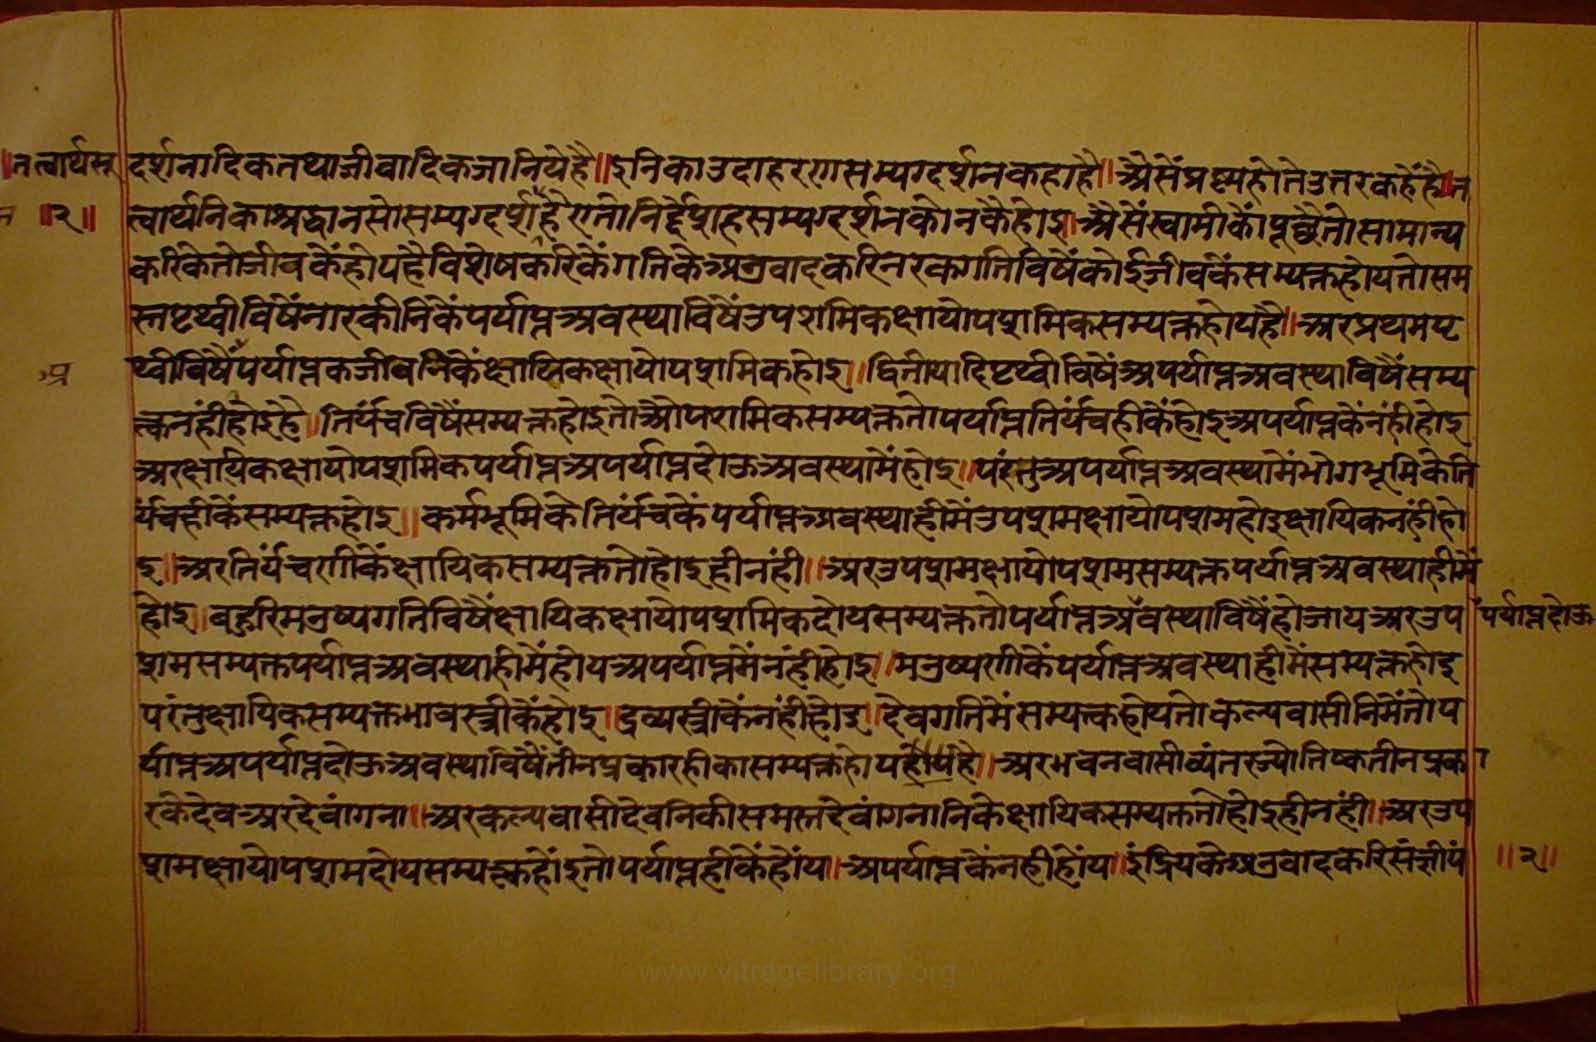 ॥तत्वार्थसू
॥२॥
दर्शनादिकतथाजीवादिकजानियेहै॥इनिकाउदाहरणसम्यग्दर्शनकहाहै॥ऐसेंप्रश्नहोतेउत्तरकहेंहै॥त
त्वार्थनिकाश्रद्धानसोसम्यग्दर्शहैएतोनिर्द्देशहसम्यग्दर्शनकोनकैहोइ।ऐसेंस्वामीकौंपूछैंतोसामान्य
करिकेतोजीवकेंहोयहैविशेषकरिकेंगतिकेअनुवादकरिनरकगतिविषेंकोईजीवकेंसम्यक्तहोयतोसम
स्तपृथ्वीविषेंनारकीनिकेंपर्याप्तअवस्थाविषेंउपशमिकक्षायोपशमिकसम्यक्तहोयहै॥अरप्रथमपृ
प्र
थ्वीविषैंपर्याप्तकजीवनिकेंक्षायिकक्षायोपशमिकहोइ॥द्वितीयादिपृथ्वीविषेंअपर्याप्तअवस्थाविषैंसम्य
त्कनंहीहोइहै॥तिर्यंचविषैंसम्यक्तहोइतोऔपशमिकसम्यक्ततोपर्याप्ततिर्यंचहीकेंहोइअपर्याप्तकेंनंहीहोइ
अरक्षायिकक्षायोपशमिकपर्याप्तअपर्याप्तदोऊअवस्थामेंहोइ॥परंतुअपर्याप्तअवस्थामेंभोगभूमिकेति
र्यंचहीकेंसम्यक्तहोइ॥कर्मभूमिकेतिर्यंचकेंपर्याप्तअवस्थाहीमेंउपशमक्षायोपशमहोइक्षायिकनंहीहो
इ॥अरतिर्यंचरणीकेंक्षायिकसम्यक्ततोहोइहीनंही॥अरउपशमक्षायोपशमसम्यक्तपर्याप्तअवस्थाहीमें
होइ॥बहुरिमनुष्यगतिविषैंक्षायिकक्षायोपशमिकदोयसम्यक्ततोपर्याप्तअवस्थाविषैंहोजायअरउप
पर्याप्तदोऊ
शमसम्यक्तपर्याप्तअवस्थाहीमेंहोयअपर्याप्तमेंनंहीहोइ॥मनुष्यरणीकेंपर्याप्तअवस्थाहीमेंसम्यक्तहोइ
परंतुक्षायिकसम्यक्तभावस्त्रीकेंहोइ॥द्रव्यस्त्रीकेंनंहीहोइ॥देवगतिमेंसम्यत्कहोयतोकल्पवासीनिमेंतोप
र्याप्तअपर्याप्तदोऊअवस्थाविषैंतीनप्रकारहीकासम्यक्तहोयहोयहै॥अरभवनवासीव्यंतरज्योतिष्कतीनप्रका
रकेदेवअरदेवांगना॥अरकल्पवासीदेवनिकीसमस्तदेवांगनानिकेक्षायिकसम्यक्ततोहोइहीनंही॥अरउप
शमक्षायोपशमदोयसम्यक्तहोंइतोपर्याप्तहीकेंहोंय॥अपर्याप्तकेंनहीहोंय॥इंद्रियकेअनुवादकरिसंज्ञीपं
॥२॥
www.vitragelibrary.org